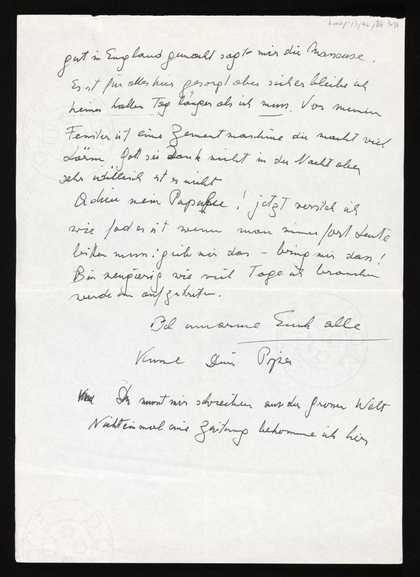 gut in England gemacht sagte mir die Masseuse.
Es ist für alles hier gesorgt aber sicher bleibe ich
keinen halben Tag länger als ich muss. Vor meinem
Fenster ist eine Zementmaschine die macht viel
Lärm, Gott sei Dank nicht in der Nacht aber
sehr idyllisch ist es nicht
Adieu mein! jetzt versteh ich
wie fad es ist wenn man immerfort Leute
bitten muss: gib mir das – bring mir das!
Bin neugierig wie viel Tage ich brauchen
werde um aufzutreten.
Ich umarme Euch alle
Deine
Du musst mir schreiben aus der grossen Welt
Nicht einmal eine Zeitung bekomme ich hier